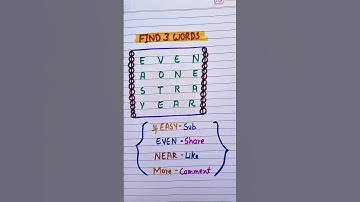 FIND 3 WORDS
E V E N
A O N E
S T R A
Y E A R
If EASY - Sub
EVEN - Share
NEAR - Like
More - Comment